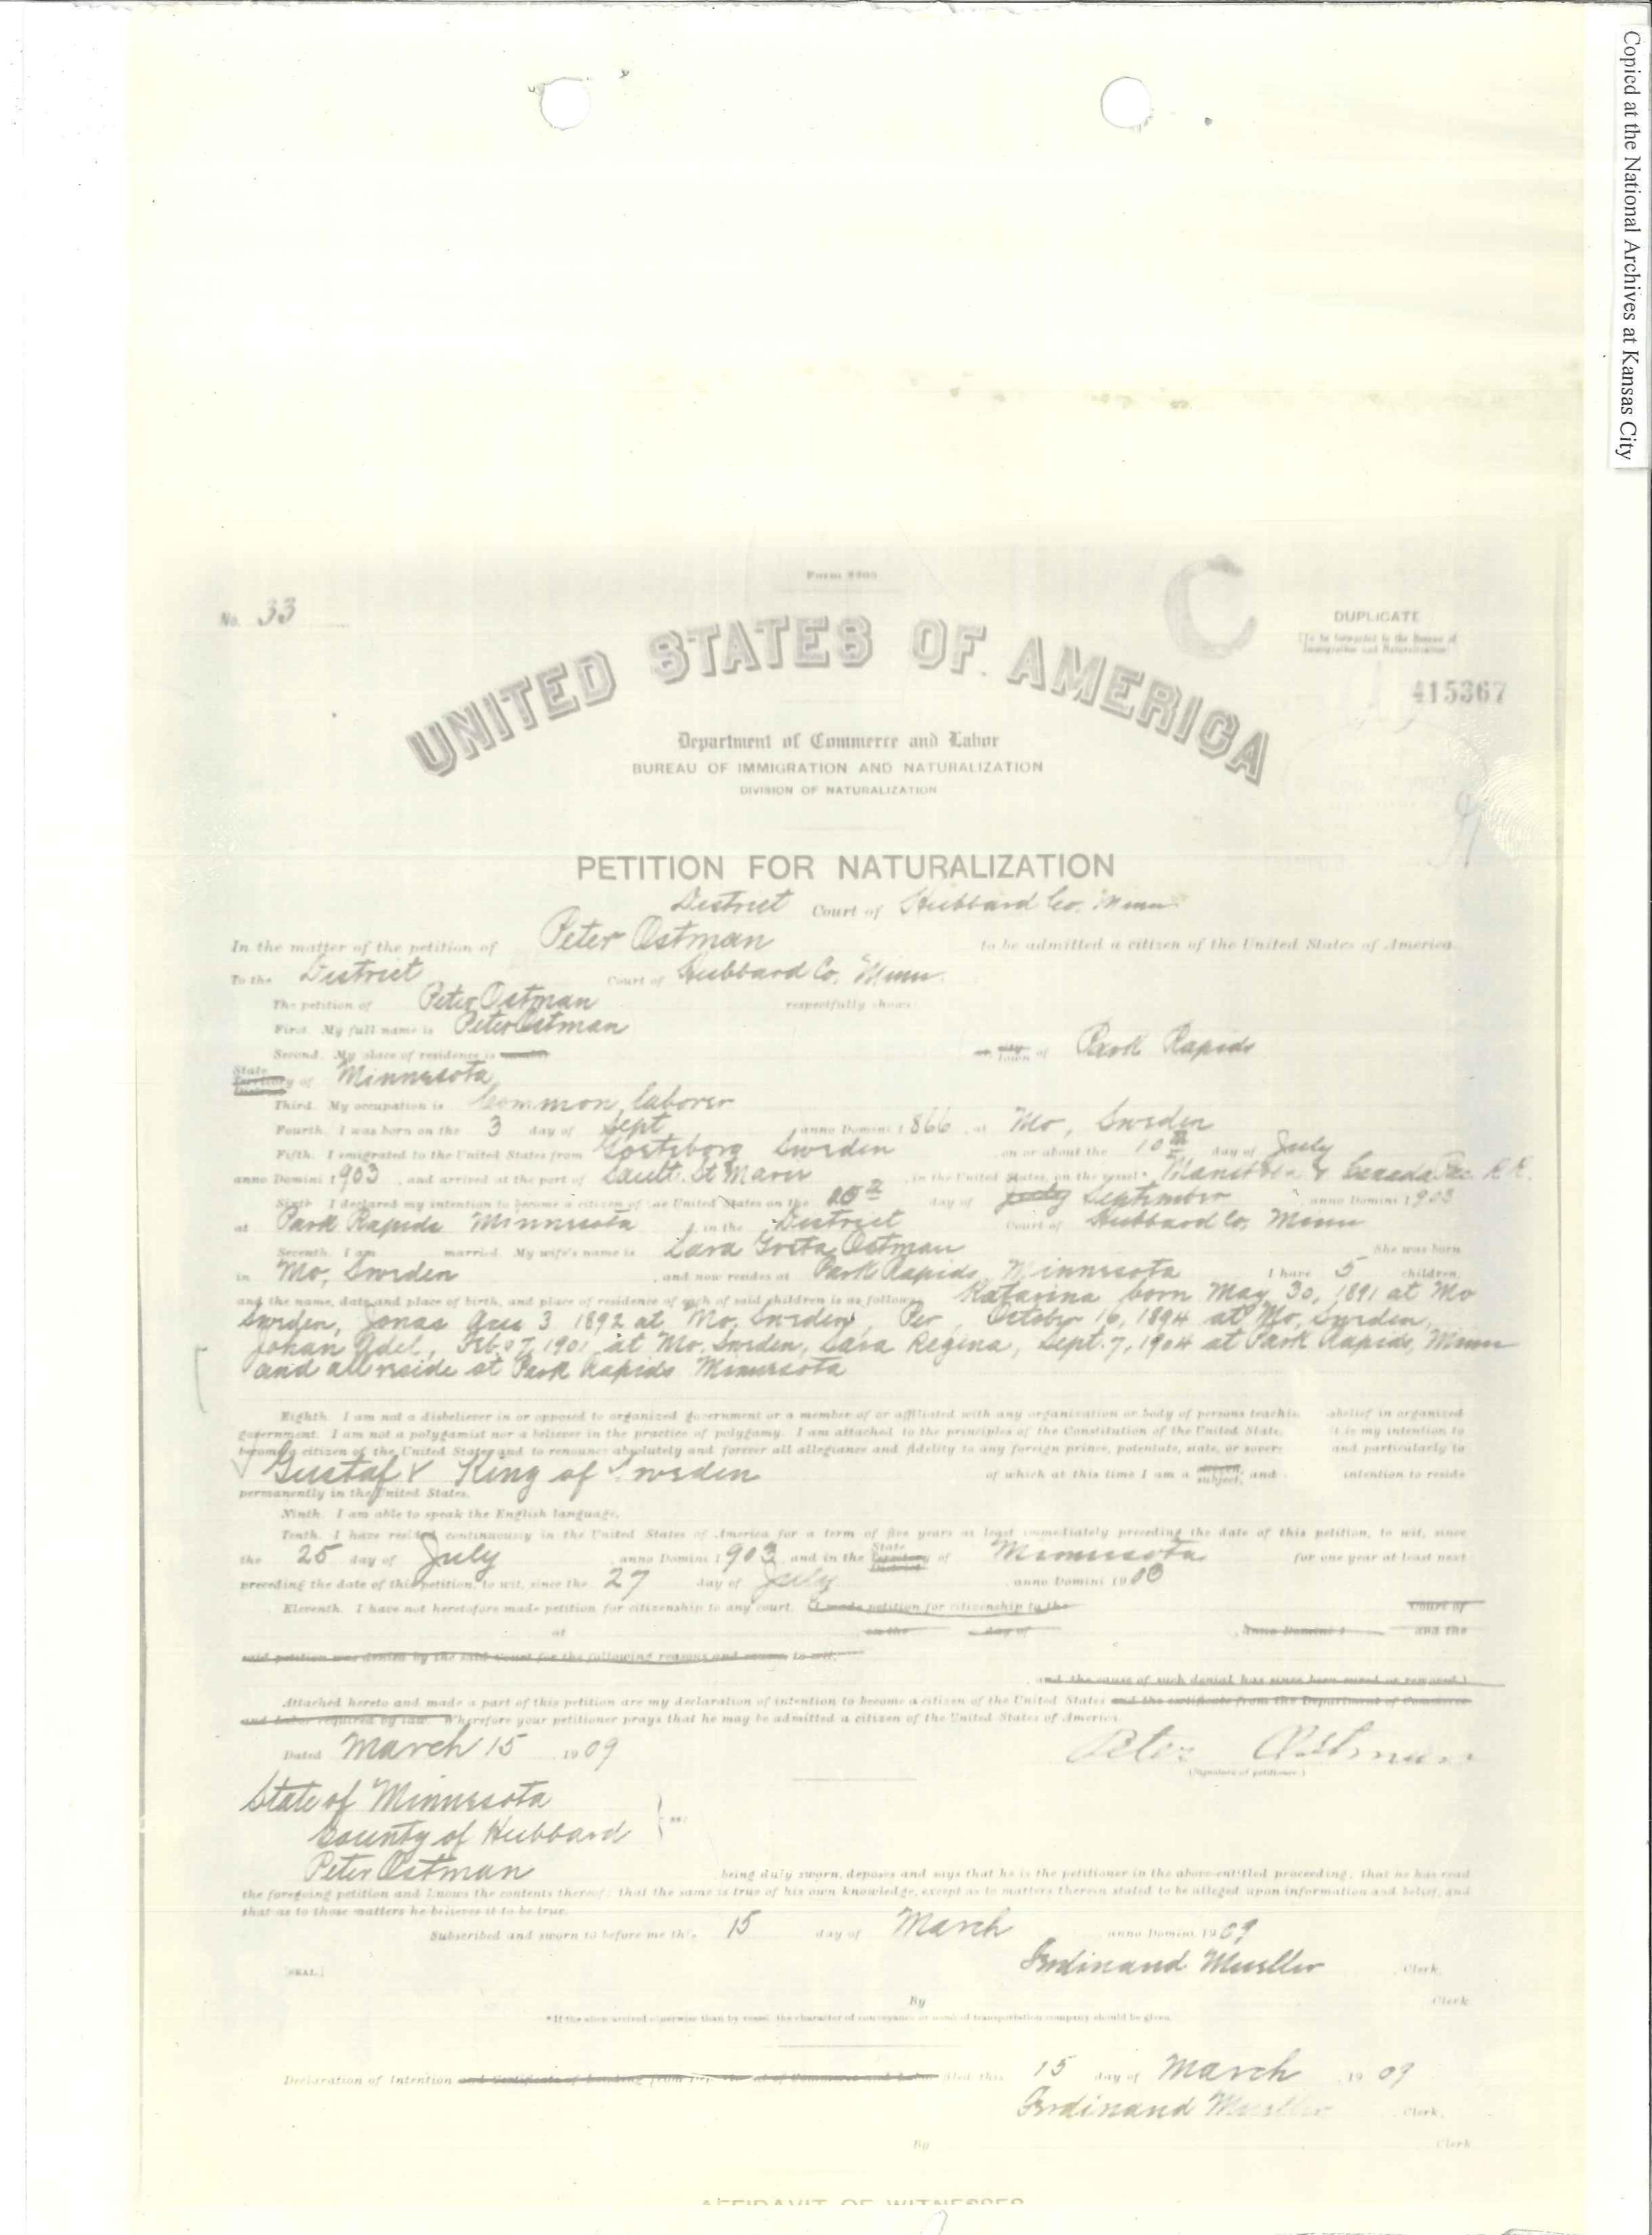 Copied at the National Archives at Kansas City
Form 2205
No. 33
C
DUPLICATE
(To be forwarded to the Bureau of
Immigration and Naturalization)
415367
UNITED STATES OF AMERICA
Department of Commerce and Labor
BUREAU OF IMMIGRATION AND NATURALIZATION
DIVISION OF NATURALIZATION
PETITION FOR NATURALIZATION
District Court of Hubbard Co. Minn
In the matter of the petition of Peter Ostman to be admitted a citizen of the United States of America.
To the District Court of Hubbard Co, Minn.
The petition of Peter Ostman respectfully shows:
First. My full name is Peter Ostman
Second. My place of residence is town of Park Rapids
State Territory District of Minnesota
Third. My occupation is Common laborer
Fourth. I was born on the 3 day of Sept anno Domini 1866, at Mo, Sweden
Fifth. I emigrated to the United States from Sweden on or about the 10 day of July
anno Domini 1903, and arrived at the port of Sault St Marie in the United States, on the vessel* Canada Pac. R.R.
Sixth. I declared my intention to become a citizen of the United States on the day of July September anno Domini 1903
at Park Rapids Minnesota in the District Court of Hubbard Co, Minn
Seventh. I am married. My wife's name is Sara Greta Ostman She was born
in Mo, Sweden and now resides at Park Rapids, Minnesota I have 5 children,
and the name, date and place of birth, and place of residence of each of said children is as follows: Katarina born May 30, 1891 at Mo
Sweden, Jonas 3 1892 at Mo, Sweden, Per, October 16, 1894 at Mo, Sweden,
Johan Adel, Feb. 07, 1901 at Mo. Sweden, Sara Regina, Sept. 7, 1904 at Park Rapids, Minn
and all reside at Park Rapids Minnesota
Eighth. I am not a disbeliever in or opposed to organized government or a member of or affiliated with any organization or body of persons teaching disbelief in organized
government. I am not a polygamist nor a believer in the practice of polygamy. I am attached to the principles of the Constitution of the United States it is my intention to
become a citizen of the United States and to renounce absolutely and forever all allegiance and fidelity to any foreign prince, potentate, state, or sovere and particularly to
Gustaf V King of Sweden of which at this time I am a subject, and intention to reside
permanently in the United States.
Ninth. I am able to speak the English language.
Tenth. I have resided continuously in the United States of America for a term of five years at least immediately preceding the date of this petition, to wit, since
the 25 day of July anno Domini 1903, and in the State Territory District of Minnesota for one year at least next
preceding the date of this petition, to wit, since the 27 day of July anno Domini 19
Eleventh. I have not heretofore made petition for citizenship to any court. (I made petition for citizenship to the Court of
at on the day of Anno Domini 1 and the
said petition was denied by the said Court for the following reasons and causes, to wit:
and the cause of such denial has since been cured or removed.)
Attached hereto and made a part of this petition are my declaration of intention to become a citizen of the United States and the certificate from the Department of Commerce
and Labor required by law. Wherefore your petitioner prays that he may be admitted a citizen of the United States of America.
Dated March 15 1909 Peter Ostman
(Signature of petitioner.)
State of Minnesota
County of Hubbard } ss:
Peter Ostman being duly sworn, deposes and says that he is the petitioner in the above-entitled proceeding; that he has read
the foregoing petition and knows the contents thereof; that the same is true of his own knowledge, except as to matters therein stated to be alleged upon information and belief, and
that as to those matters he believes it to be true.
Subscribed and sworn to before me this 15 day of March anno Domini 1909
Ferdinand Mueller Clerk.
[SEAL.]
By Clerk
*If the alien arrived otherwise than by vessel, the character of conveyance or name of transportation company should be given.
Declaration of Intention and Certificate of Landing from Department of Commerce and Labor filed this 15 day of March 1909
Ferdinand Mueller Clerk.
By Clerk
AFFIDAVIT OF WITNESSES